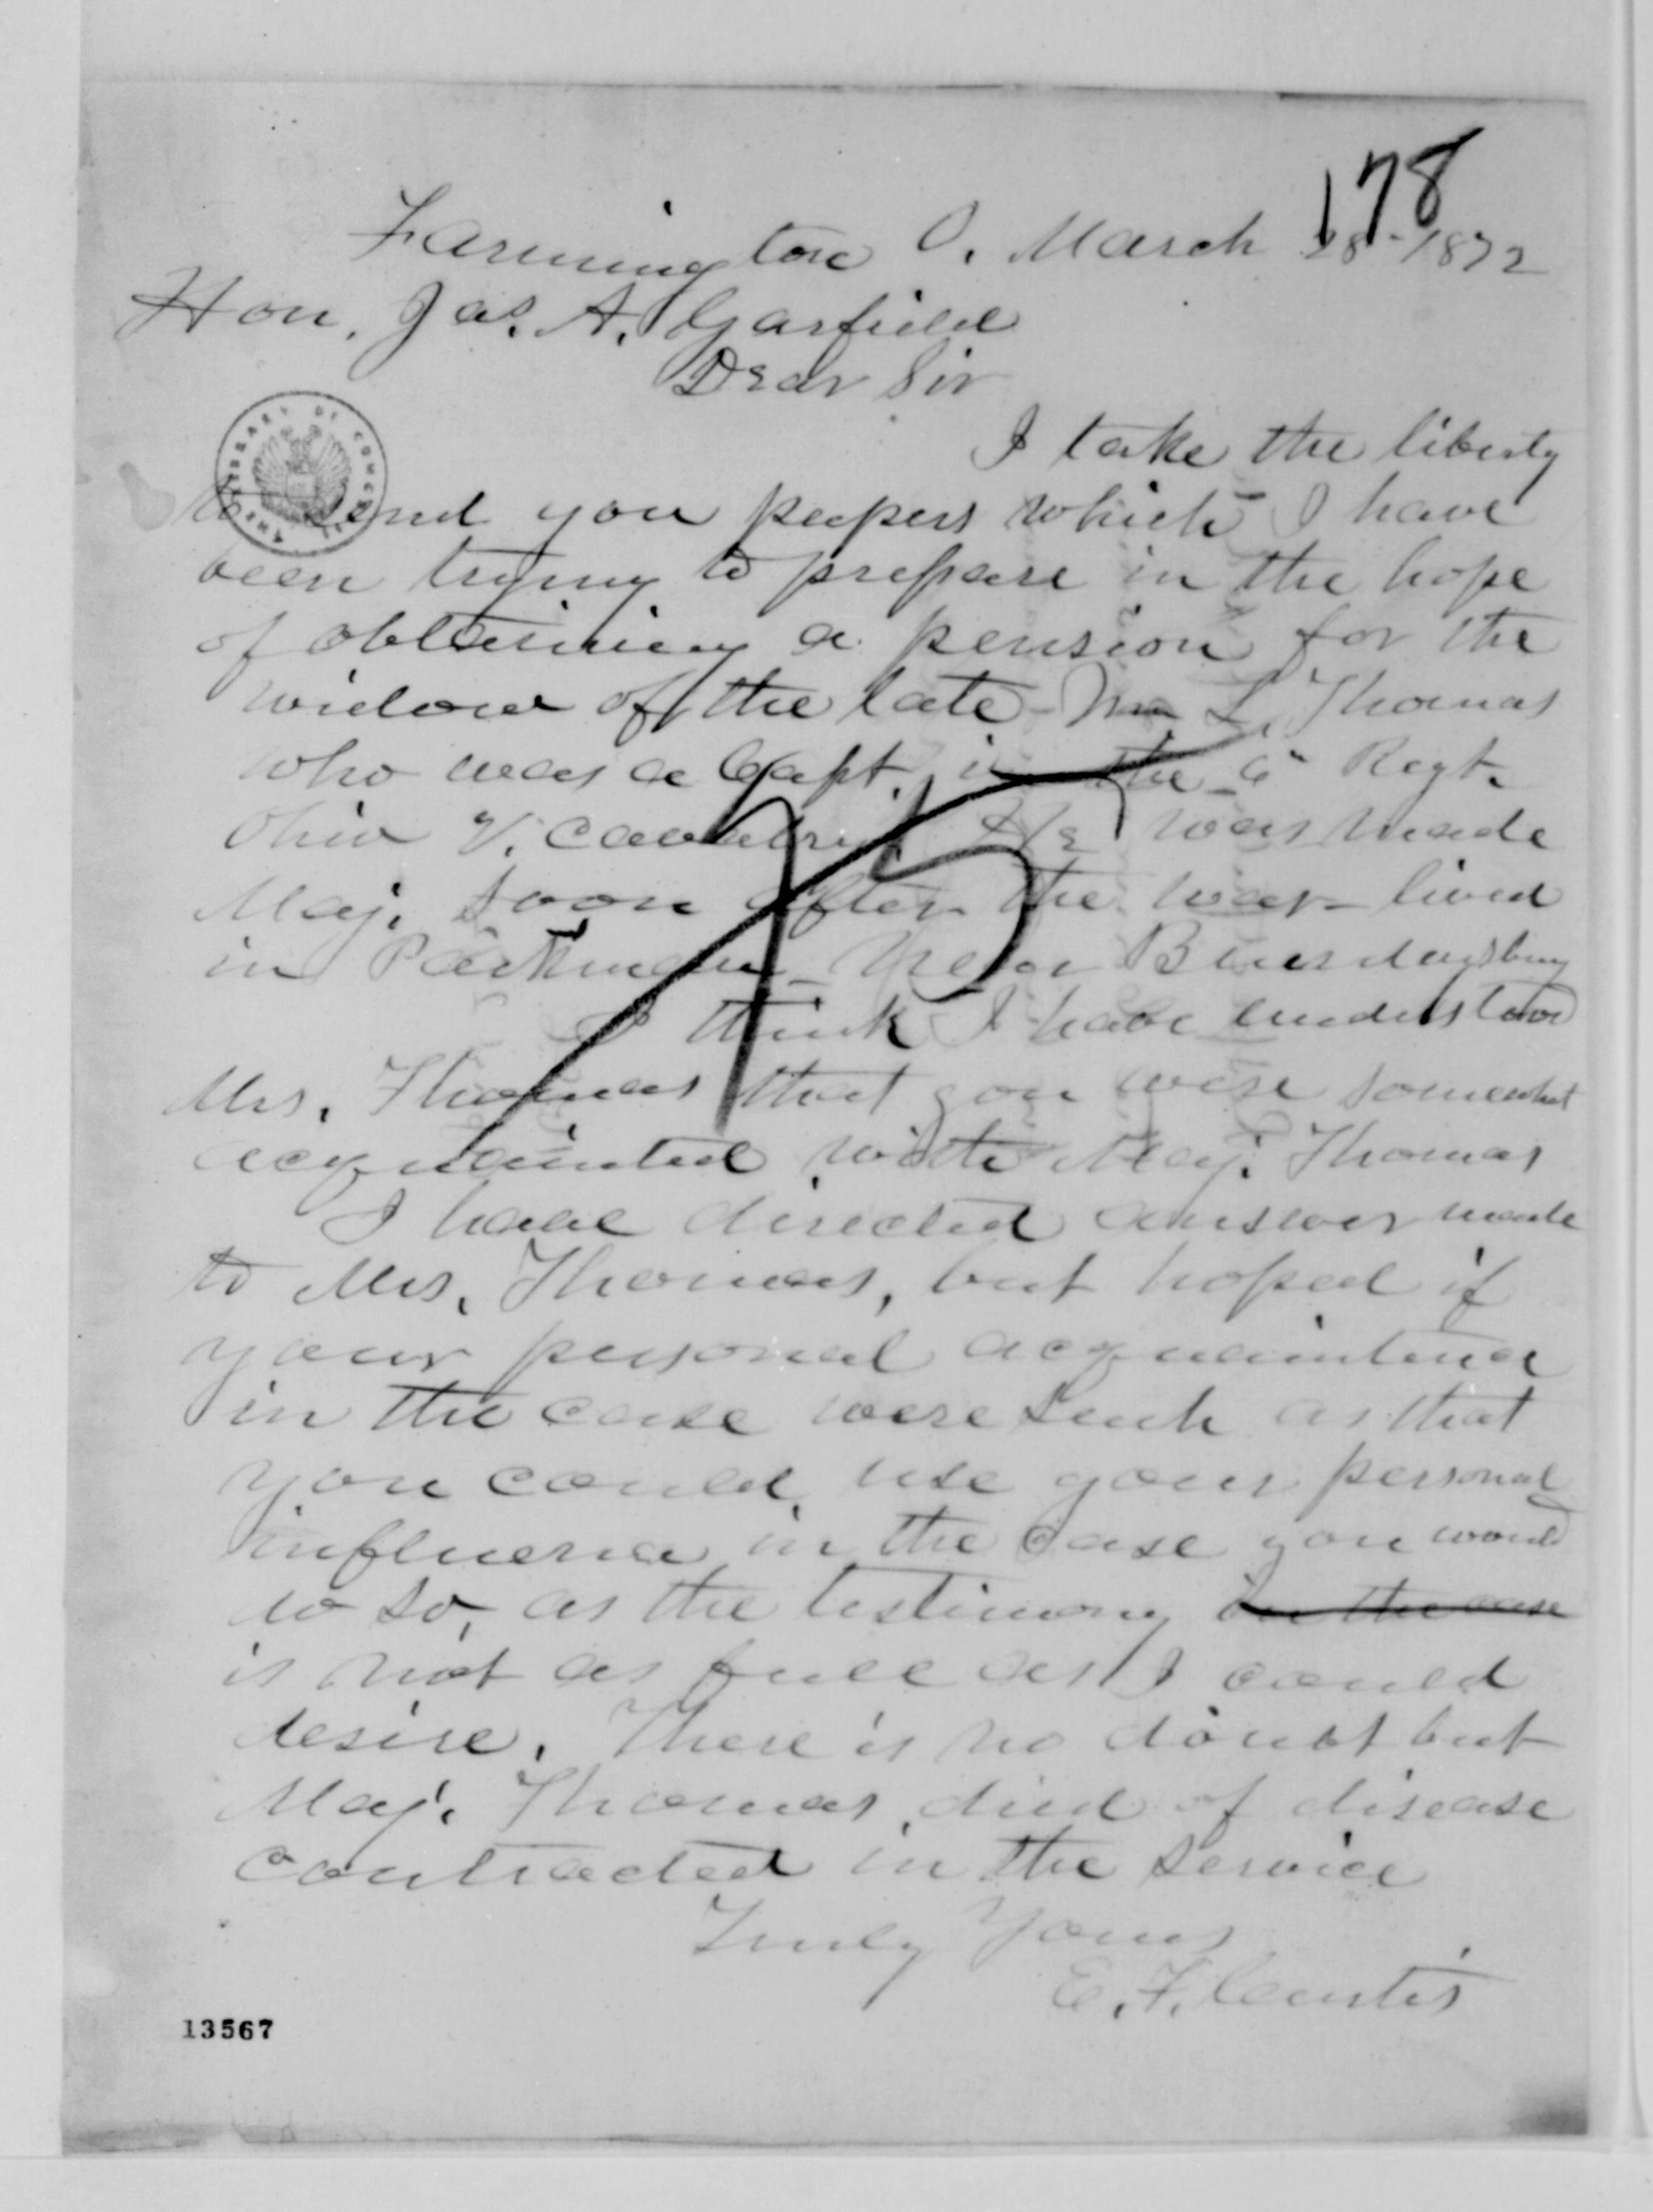 178
Farmington O. March 28 - 1872
Hon. Jas. A. Garfield
Dear Sir
I take the liberty
to send you papers which I have
been trying to prepare in the hope
of obtaining a pension for the
widow of the late Wm L. Thomas
who was a Capt. in the 6" Regt.
Ohio V. Cavalry He was made
Maj. soon after the war - lived
in Parkman - near Bundaysburg
I think I have understood
Mrs. Thomas that you were somewhat
acquainted with Maj. Thomas
I have directed answer made
to Mrs. Thomas, but hoped if
your personal acquaintance
in the case were such as that
you could use your personal
influence in the case you would
do so, as the testimony in the case
is not as full as I could
desire. There is no doubt but
Maj. Thomas died of disease
contracted in the service
Truly Yours
E. F. Curtis
THE LIBRARY OF CONGRESS
13567